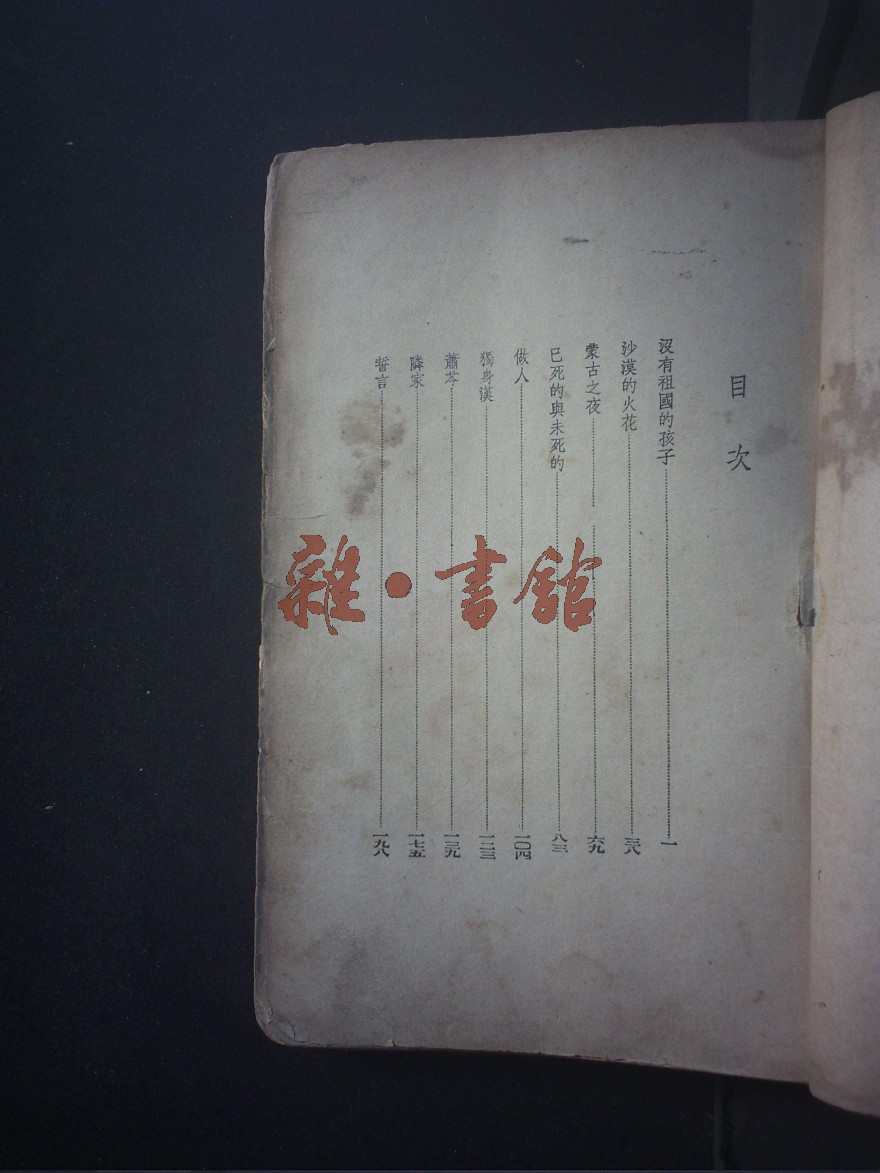 目次
沒有祖國的孩子……一
沙漠的火花……三八
蒙古之夜……六九
已死的與未死的……八三
做人……一〇四
獨身漢……一二三
蕭苓……一三九
隣家……一七五
誓言……一九八
雜•書館